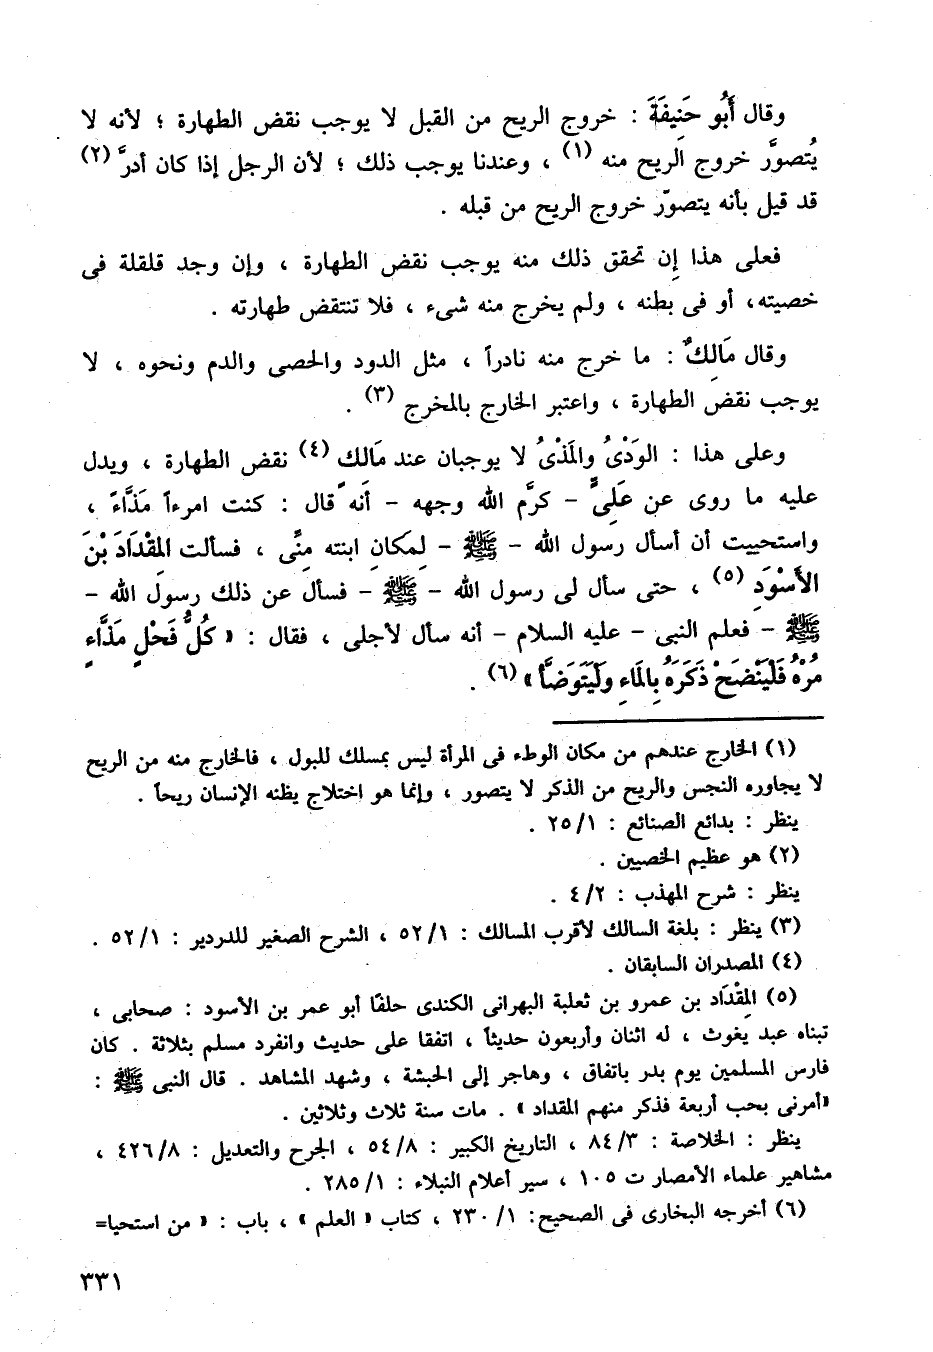 وقال أَبُو حَنِيفَةَ : خروج الريح من القبل لا يوجب نقض الطهارة ؛ لأنه لا
يُتصوَّر خروج الريح منه (١) ، وعندنا يوجب ذلك ؛ لأن الرجل إذا كان أدرَّ (٢)
قد قيل بأنه يتصوّر خروج الريح من قبله .
فعلى هذا إِن تحقق ذلك منه يوجب نقض الطهارة ، وإن وجد قلقلة فى
خصيته، أو فى بطنه ، ولم يخرج منه شىء ، فلا تنتقض طهارته .
وقال مَالِكٌ : ما خرج منه نادراً ، مثل الدود والحصى والدم ونحوه ، لا
يوجب نقض الطهارة ، واعتبر الخارج بالمخرج (٣) .
وعلى هذا : الوَدْىُ والمَذْىُ لا يوجبان عند مَالكٍ (٤) نقض الطهارة ، ويدل
عليه ما روى عن عَلَىٍّ – كرَّم الله وجهه – أنه قال : كنت امرءاً مَذَّاءً ،
واستحييت أن أسأل رسول الله – ﷺ – لِمكانِ ابنته مِنَّى ، فسألت المِقْدَادَ بْنَ
الأَسْوَدِ (٥) ، حتى سأل لى رسول الله – ﷺ – فسأل عن ذلك رسول الله –
ﷺ – فعلم النبى – عليه السلام – أنه سأل لأجلى ، فقال : « كُلُّ فَحْلٍ مَذَّاءٍ
مُرْهُ فَلْيَنْضَحْ ذَكَرَهُ بِالمَاءِ وَلْيَتَوَضَّأْ » (٦) .
(١) الخارج عندهم من مكان الوطء فى المرأة ليس بمسلك للبول ، فالخارج منه من الريح
لا يجاوره النجس والريح من الذكر لا يتصور ، وإنما هو اختلاج يظنه الإنسان ريحاً .
ينظر : بدائع الصنائع : ٢٥/١ .
(٢) هو عظيم الخصيين .
ينظر : شرح المهذب : ٤/٢ .
(٣) ينظر : بلغة السالك لأقرب المسالك : ٥٢/١ ، الشرح الصغير للدردير : ٥٢/١ .
(٤) المصدران السابقان .
(٥) المِقْدَاد بن عمرو بن ثعلبة البهرانى الكندى حلفًا أبو عمر بن الأسود : صحابى ،
تبناه عبد يغوث ، له اثنان وأربعون حديثاً ، اتفقا على حديث وانفرد مسلم بثلاثة . كان
فارس المسلمين يوم بدر باتفاق ، وهاجر إلى الحبشة ، وشهد المشاهد . قال النبى ﷺ :
«أمرنى بحب أربعة فذكر منهم المقداد » . مات سنة ثلاث وثلاثين .
ينظر : الخلاصة : ٨٤/٣ ، التاريخ الكبير : ٥٤/٨ ، الجرح والتعديل : ٤٢٦/٨ ،
مشاهير علماء الأمصار ت ١٠٥ ، سير أعلام النبلاء : ٢٨٥/١ .
(٦) أخرجه البخارى فى الصحيح: ٢٣٠/١ ، كتاب « العلم » ، باب : « من استحيا=
٣٣١